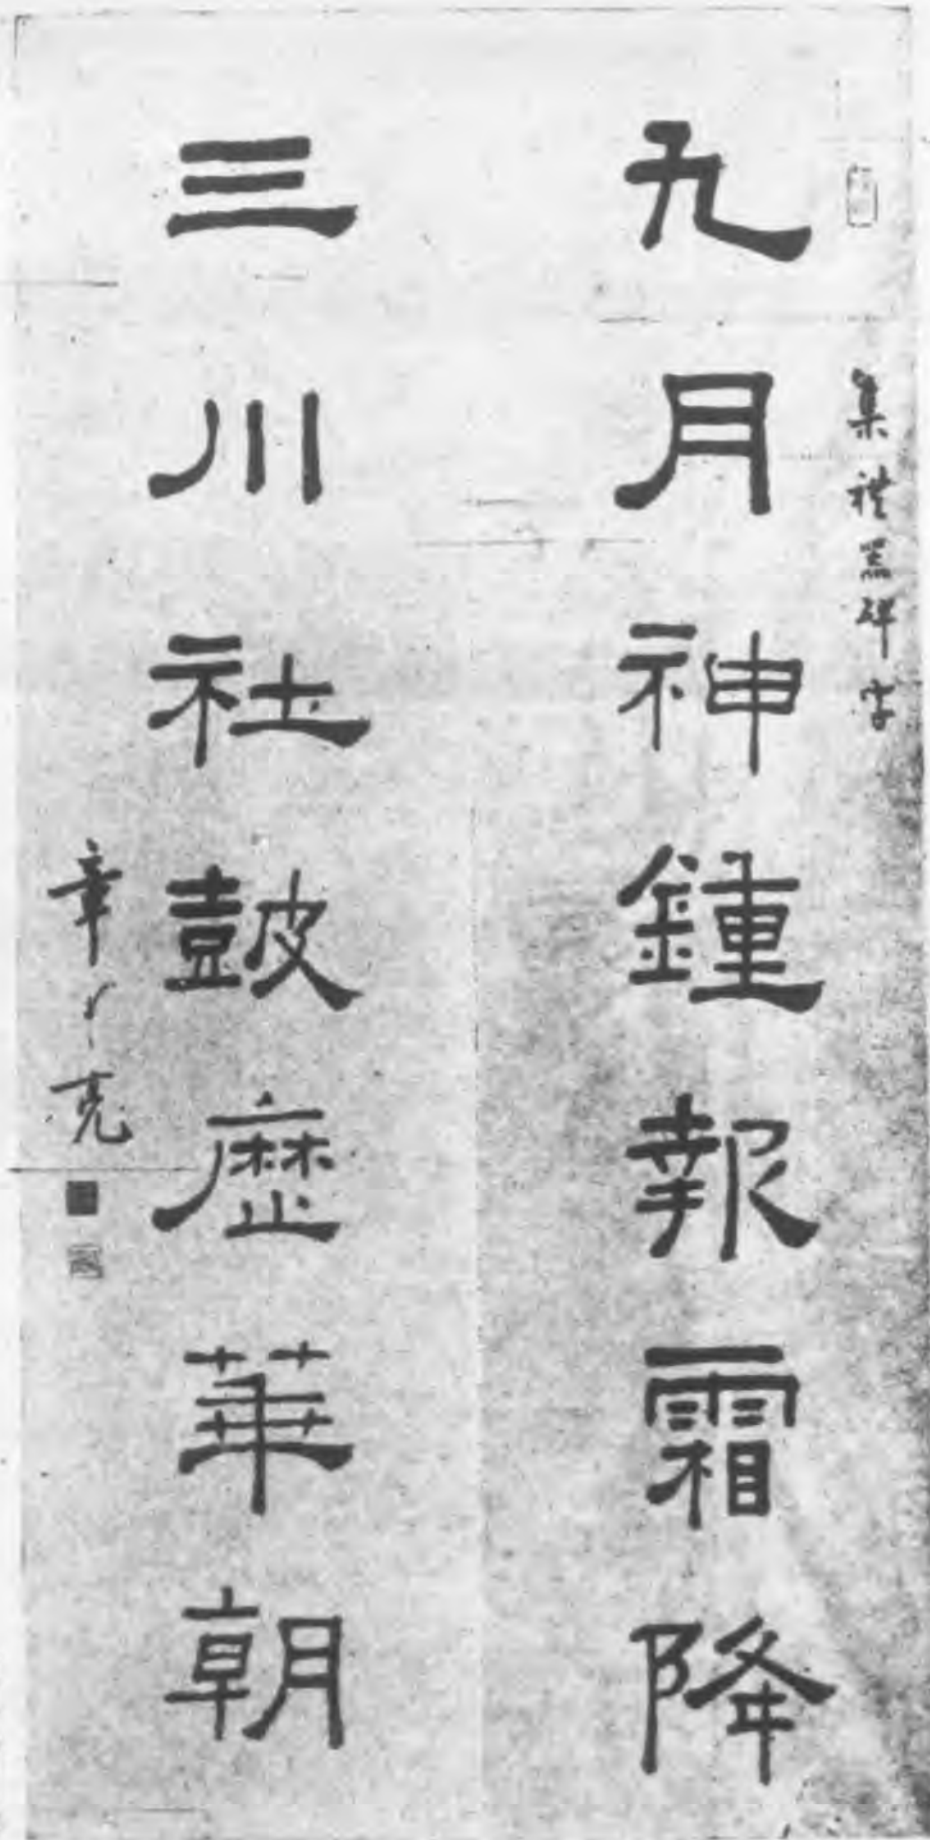 集禮器碑字
九月神鍾報霜降
三川社鼓歷華朝
章亮